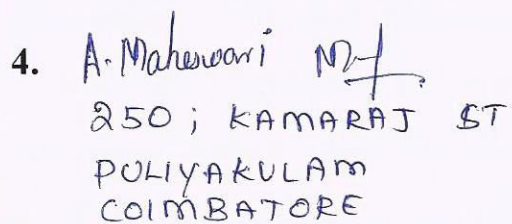 4. A. Maheswari
250; KAMARAJ ST
PULIYAKULAM
COIMBATORE